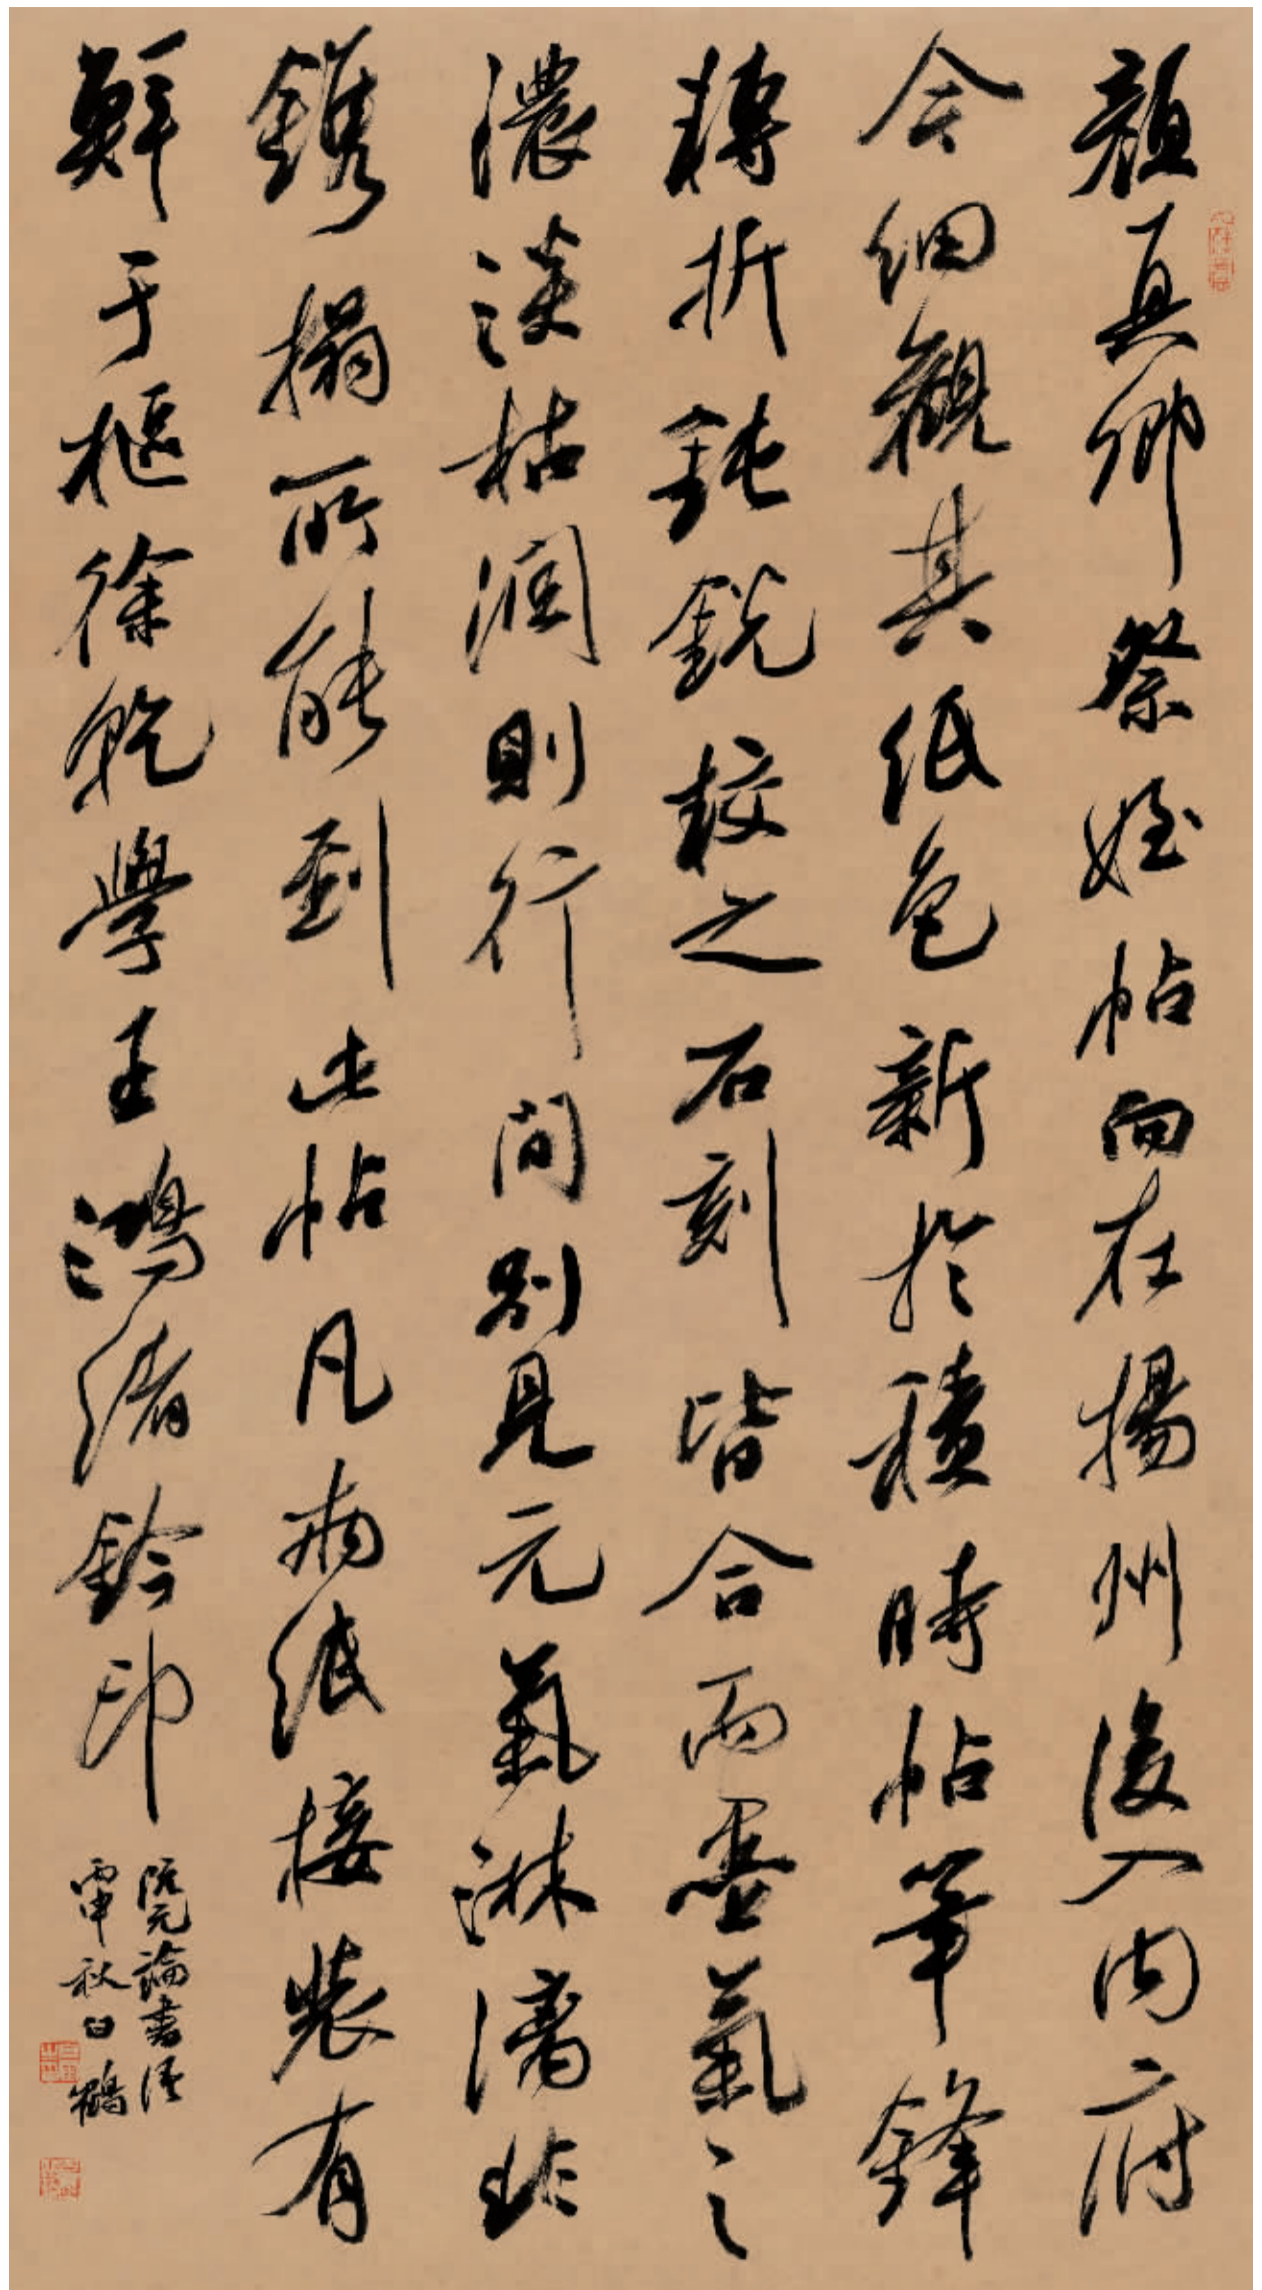 顏真卿祭姪帖向在揚州後入内府
今細觀其紙色新於積時帖筆鋒
轉折鈍銳較之石刻皆合而墨氣之
濃淡枯潤則行間別見元氣淋漓非
鐫搨所能到此帖凡兩紙接裝有
鮮于樞徐乾學王鴻緒鈐印
阮元論書語
甲秋日鶴